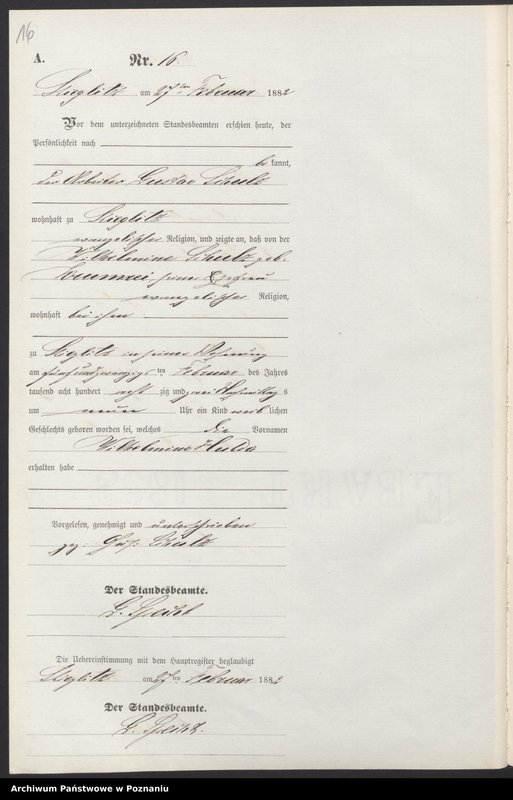 16
A.
Nr. 16.
Stieglitz am 27ten Februar 1882
Vor dem unterzeichneten Standesbeamten erschien heute, der
Persönlichkeit nach
be kannt,
der Arbeiter Gustav Schulz
wohnhaft zu Stieglitz
evangelischer Religion, und zeigte an, daß von der
Wilhelmine Schulz geb.
seiner Ehefrau
evangelischer Religion,
wohnhaft bei ihm
zu Stieglitz in seiner Wohnung
am fünfundzwanzigsten Februar des Jahres
tausend acht hundert acht zig und zwei Vormittags
um neun Uhr ein Kind weib lichen
Geschlechts geboren worden sei, welches die Vornamen
Wilhelmine Hulda
erhalten habe
Vorgelesen, genehmigt und unterschrieben
gez: Gust. Schulz
Der Standesbeamte.
Die Uebereinstimmung mit dem Hauptregister beglaubigt
Stieglitz am 27ten Februar 1882
Der Standesbeamte.
Archiwum Państwowe w Poznaniu